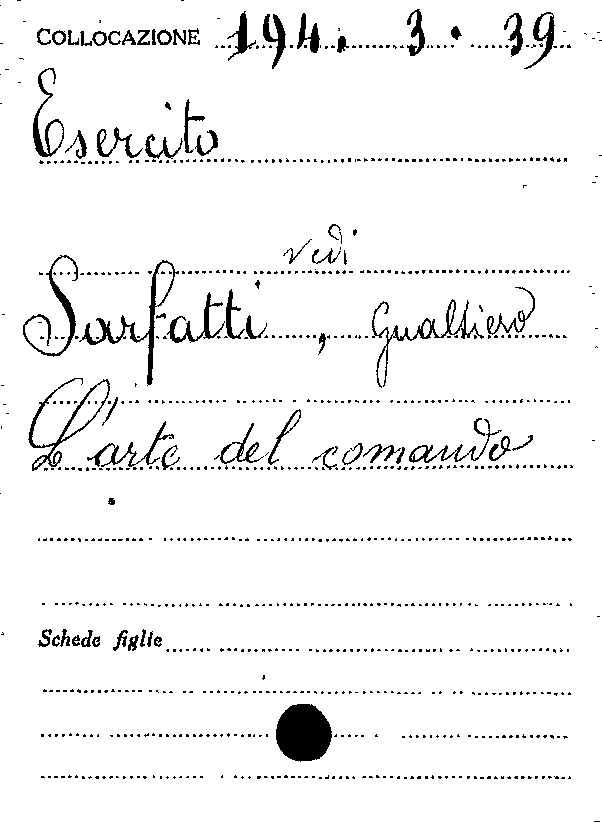 COLLOCAZIONE 194. 3. 39
Esercito
vedi
Sarfatti, Gualtiero
L'arte del comando
Schede figlie